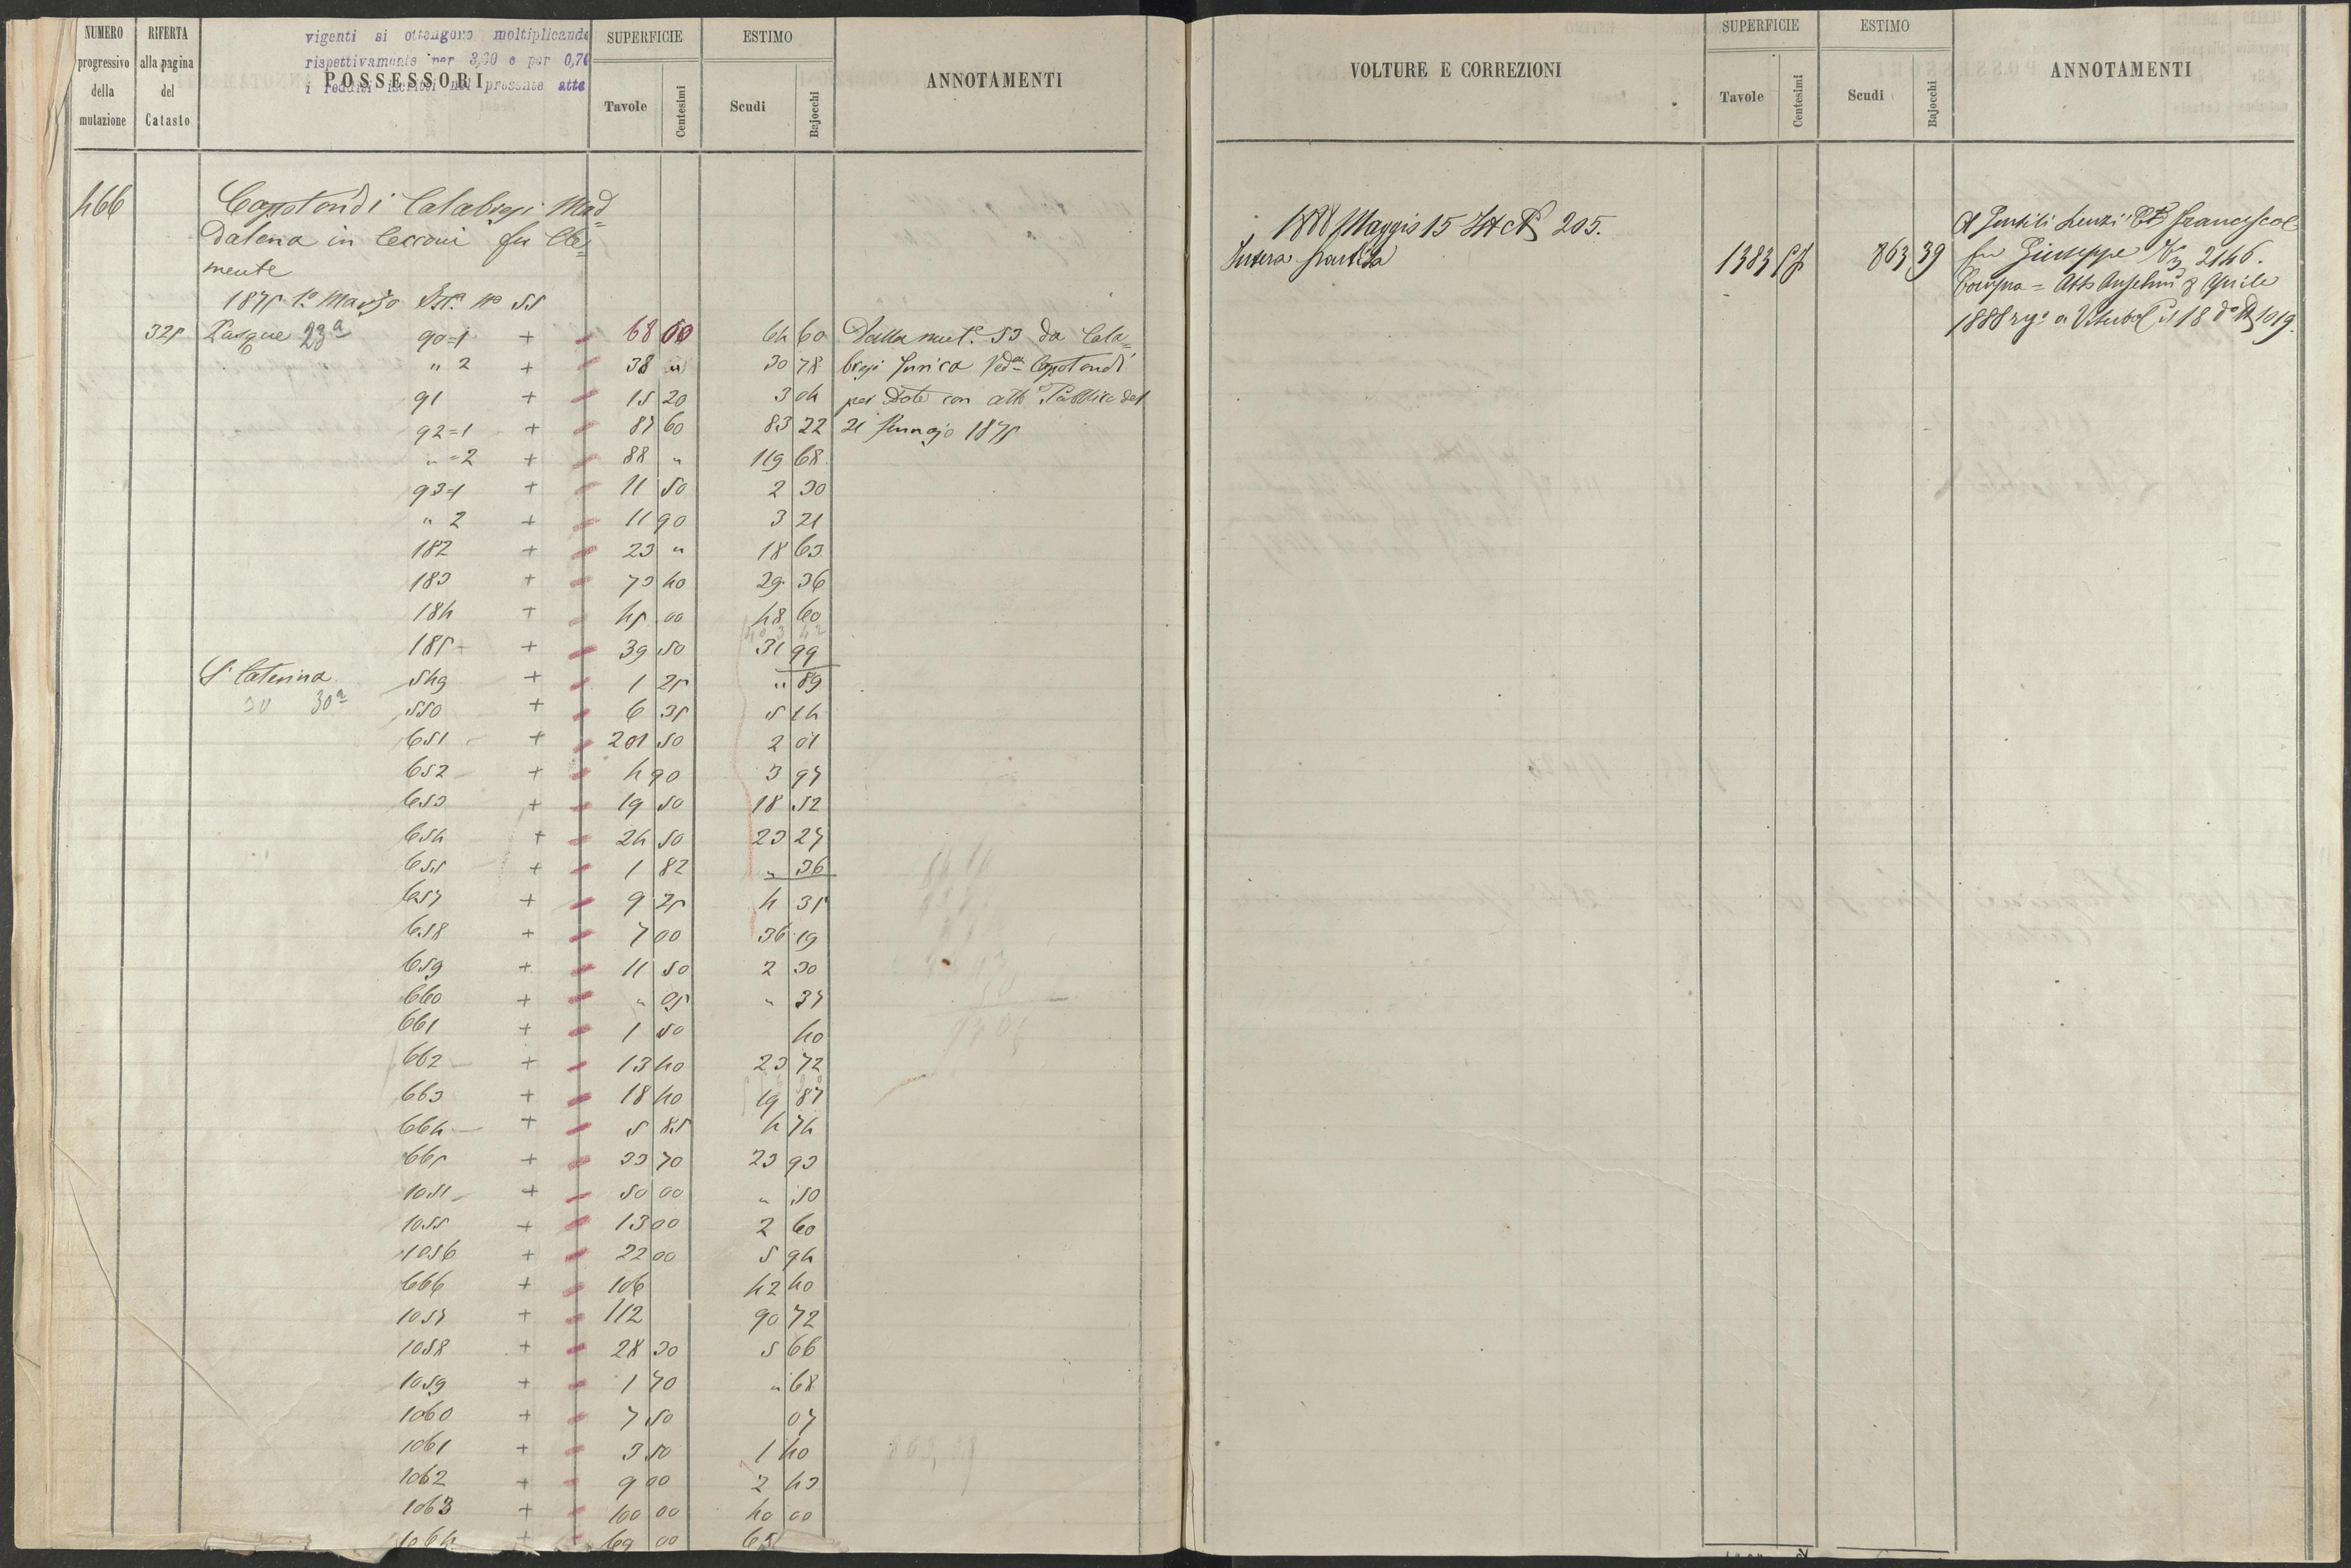 NUMERO progressivo della mutazione
RIFERTA alla pagina del Catasto
vigenti si ottengono moltiplicando
rispettivamente per 3,60 e per 0,70
i redditi iscritti nel presente atto
POSSESSORI
SUPERFICIE Tavole Centesimi
ESTIMO Scudi Bajocchi
ANNOTAMENTI
466 Capotondi Calabresi Mad=
dalena in Cecconi fu Cle=
mente
1875 1º Marzo N 55
325 23ª 90=1 + 68 00 64 60 Dalla mut.e 53 da Cala=
" 2 + 38 " 30 78 bresi Vedª Capotondi
91 + 15 20 3 04 per Dote con atto Pubblico del
92=1 + 87 60 83 22 21 Gennajo 1875
" =2 + 88 " 119 68
93=1 + 11 50 2 30
" 2 + 11 90 3 21
182 + 23 " 18 63
183 + 73 40 29 36
184 + 45 00 48 60
185 + 39 50 31 99
S. Caterina 549 + 1 25 " 89
30ª 550 + 6 35 5 14
651 + 201 50 2 01
652 + 4 90 3 97
653 + 19 50 18 52
654 + 24 50 23 27
655 + 1 82 " 36
657 + 9 25 4 35
658 + 7 00 36 19
659 + 11 50 2 30
660 + " 95 " 37
661 + 1 50 40
662 + 13 40 23 72
663 + 18 40 19 87
664 + 5 85 4 74
665 + 33 70 23 93
1051 + 50 00 " 50
1055 + 13 00 2 60
1056 + 22 00 5 94
666 + 106 42 40
1057 + 112 90 72
1058 + 28 30 5 66
1059 + 1 70 " 68
1060 + 7 50 07
1061 + 3 50 1 40
1062 + 9 00 2 43
1063 + 100 00 40 00
1064 + 69 00 65
VOLTURE E CORREZIONI
SUPERFICIE Tavole Centesimi
ESTIMO Scudi Bajocchi
ANNOTAMENTI
1888 Maggio 15 205.
Intera partita 1383 57 863 39
A Gentili Lenzi Francesco
fu Giuseppe 2146.
Atto Anselmi 8 Aprile
1888 a Viterbo il 18 do 1019.